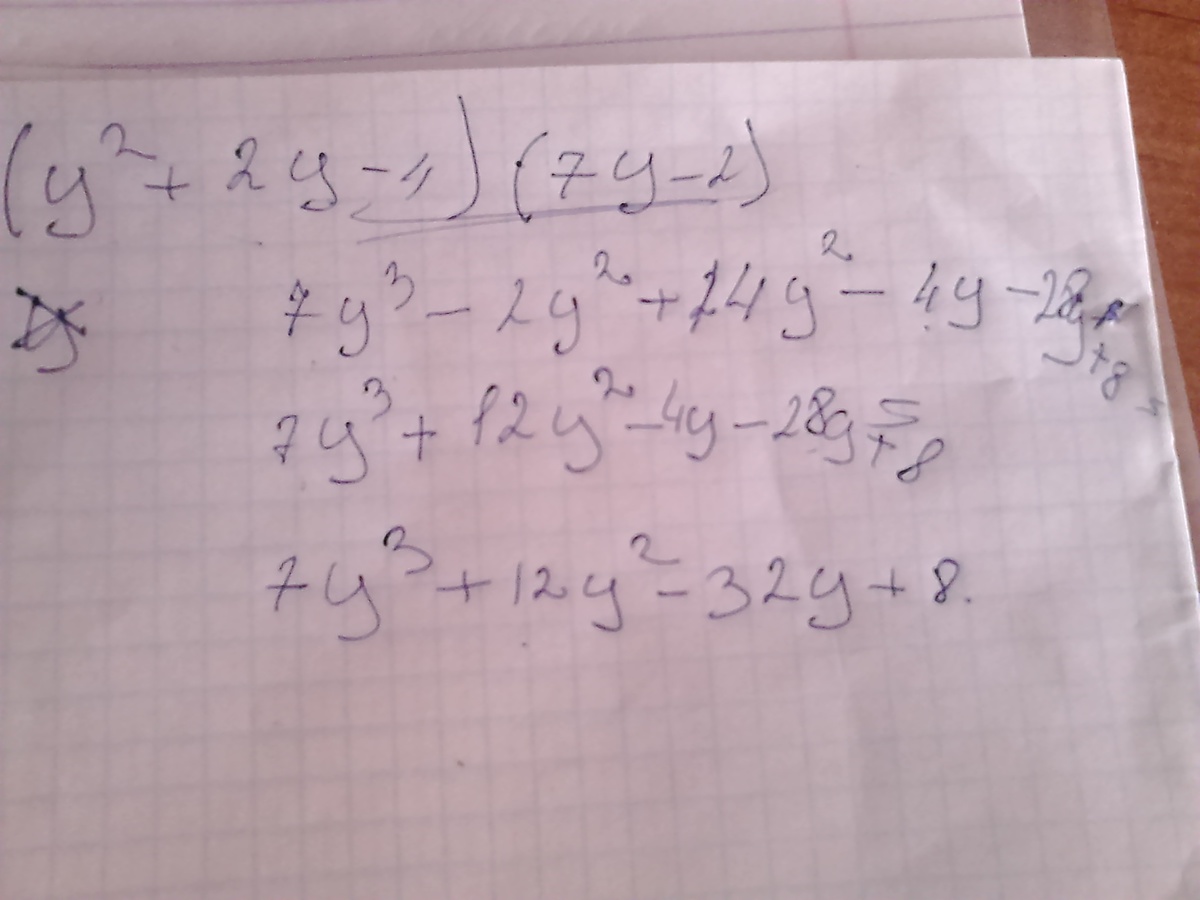 (y² + 2y - 1) (7y - 2)
7y³ - 2y² + 14y² - 4y - 28y + 8 =
7y³ + 12y² - 4y - 28y + 8 =
7y³ + 12y² - 32y + 8.